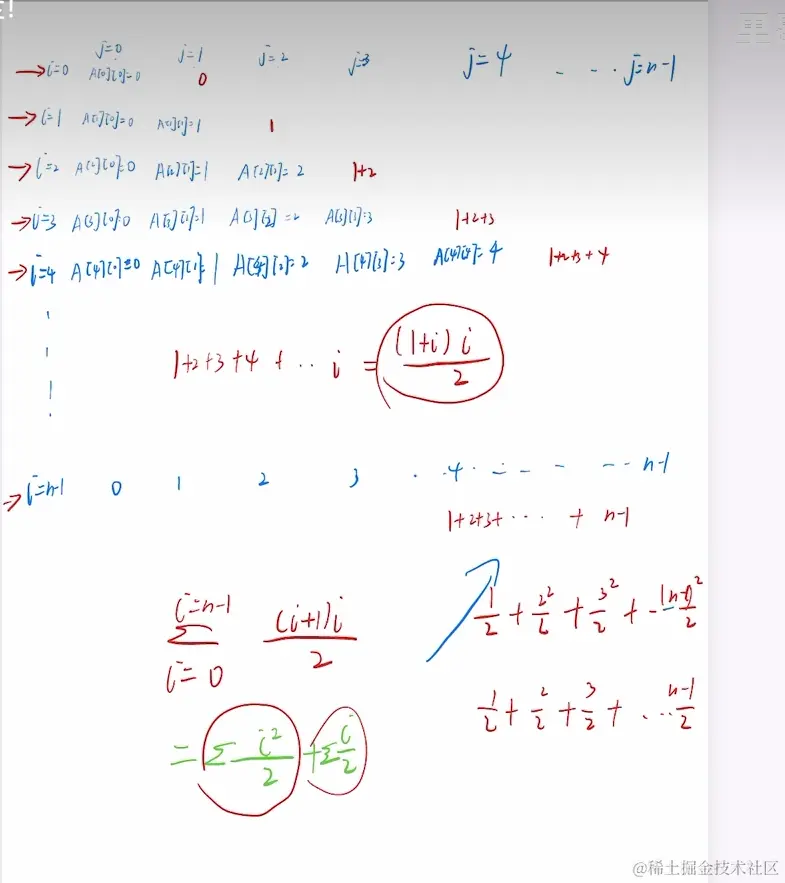 j=0 j=1 j=2 j=3 j=4 - - · j=n-1
→ i=0 A[0][0]=0 0
→ i=1 A[1][0]=0 A[1][1]=1 1
→ i=2 A[2][0]=0 A[2][1]=1 A[2][2]=2 1+2
→ i=3 A[3][0]=0 A[3][1]=1 A[3][2]=2 A[3][3]=3 1+2+3
→ i=4 A[4][0]=0 A[4][1]=1 A[4][2]=2 A[4][3]=3 A[4][4]=4 1+2+3+4
1+2+3+4+ ·· i = (1+i) i / 2
→ i=n-1 0 1 2 3 · ·4· - - - - - n-1
1+2+3+ ···· + n-1
i=n-1
Σ (i+1)i / 2
i=0
1/2 + 2²/2 + 3²/2 + - (n-1)²/2
1/2 + 2/2 + 3/2 + ··· n-1/2
= Σ i²/2 + Σ i/2
@稀土掘金技术社区